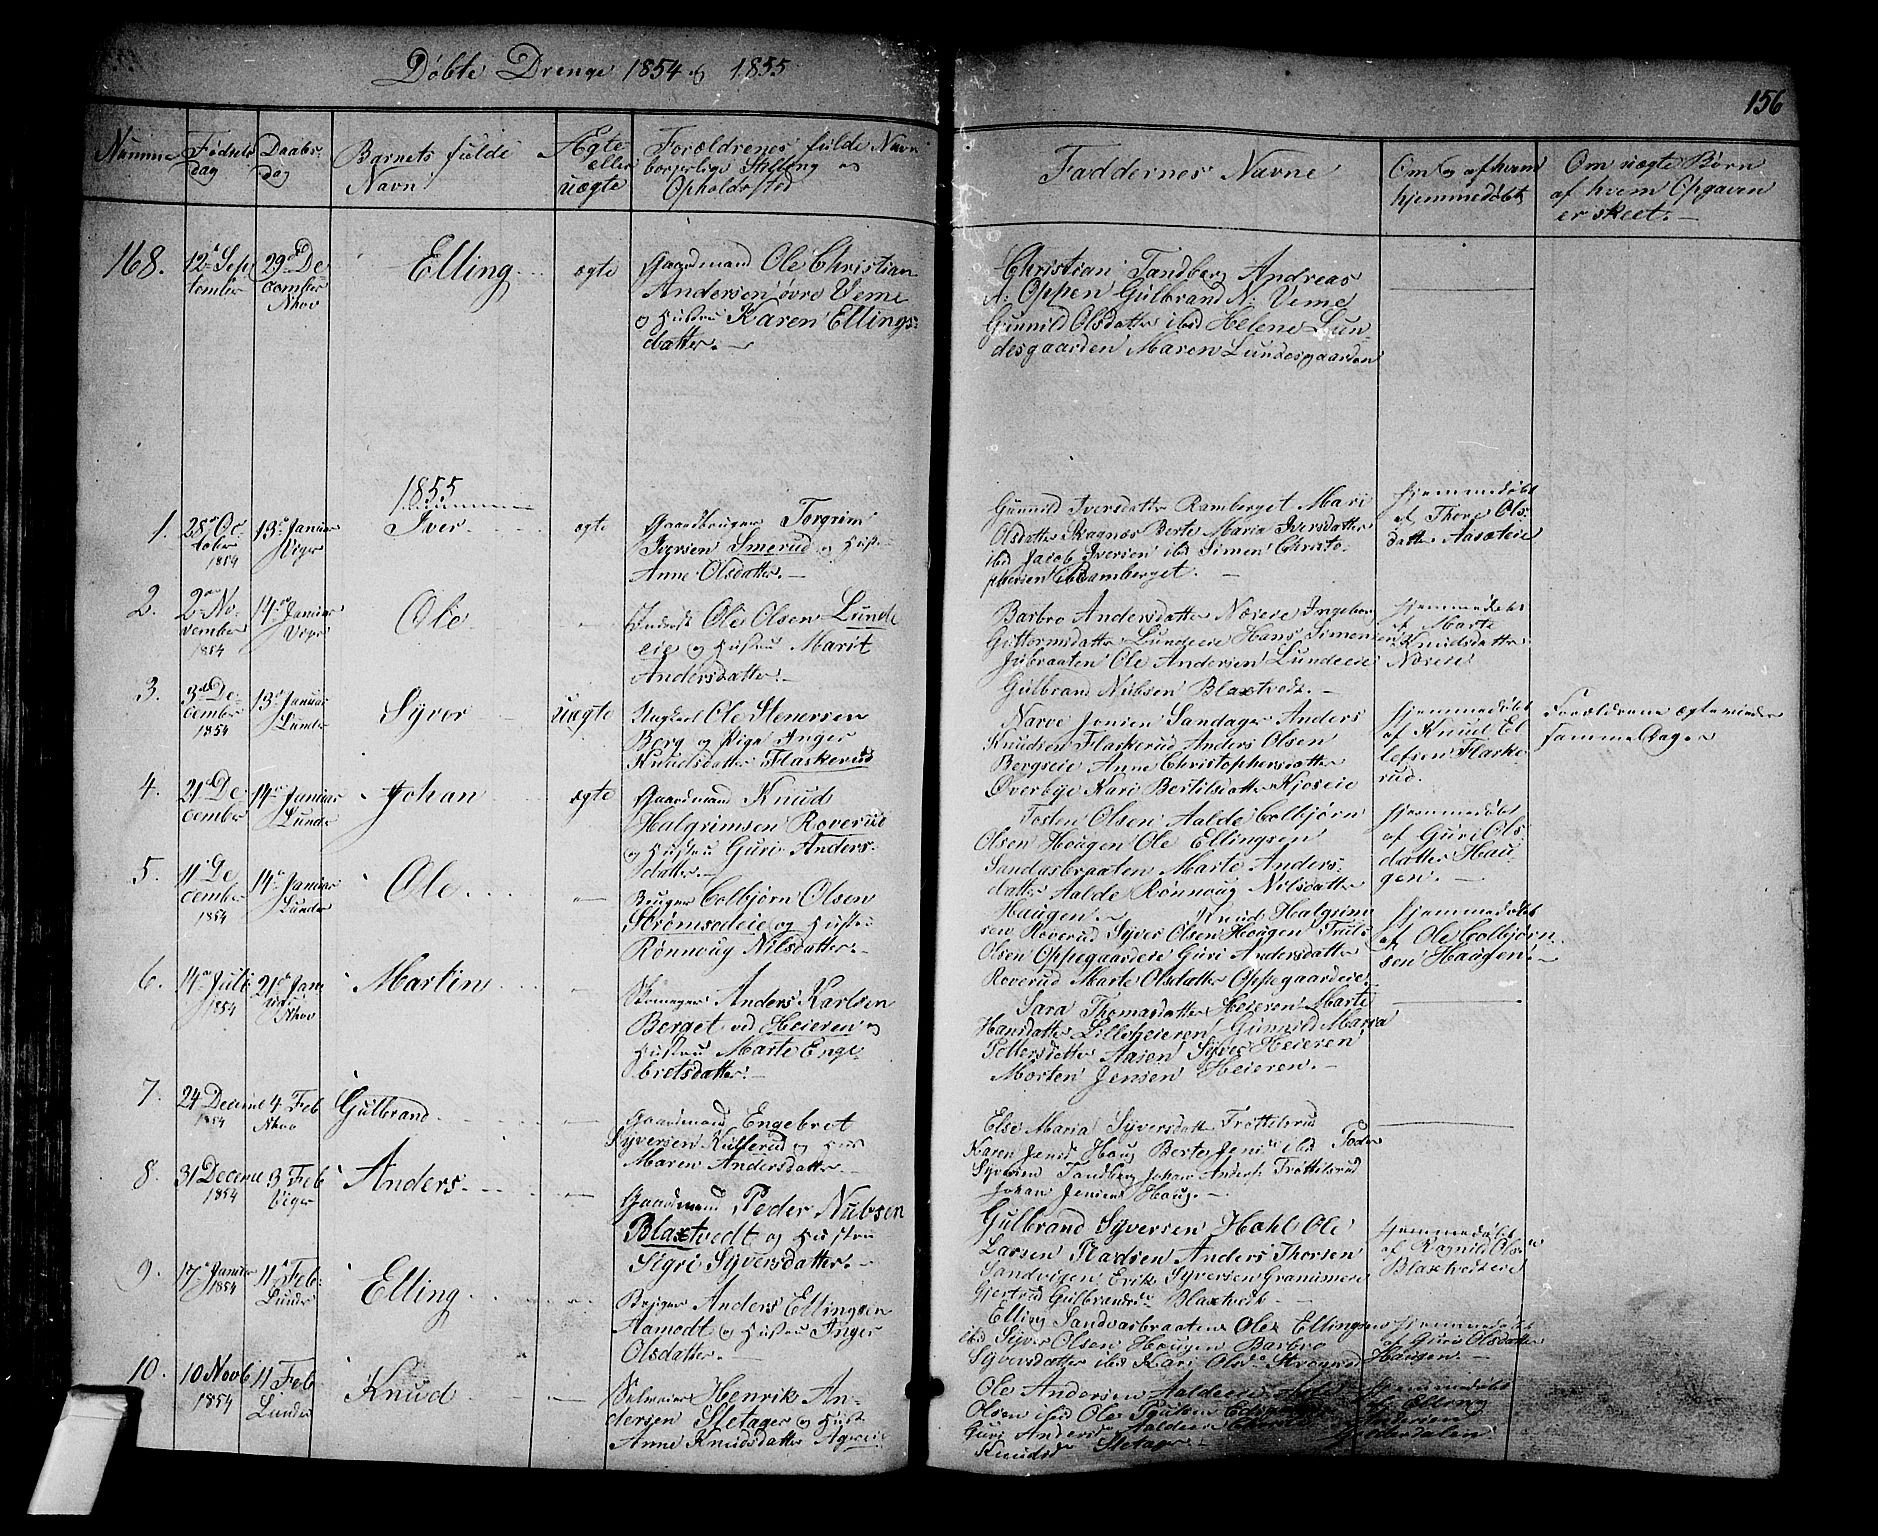 Døbte Drenge 1854 og 1855
156
Numme
Fødsels
dag
Daabs-
dag
Barnets fulde
Navn
Ægte
eller
uægte
Forældrenes fulde Navn
borgerlige Stilling og
Opholdssted
Faddernes Navne
Om og af hvem
hjemmedøbt
Om uægte Børn
af hvem Opgaven
er skeet. -
168.
12te Sep
tember
29de De
cember
Nkov
Elling
ægte
Gaardmand Ole Christian
Andersen øvre Veme
og Hustru Karen Ellings-
datter. -
Christian Tandberg Andreas
A: Oppen Gulbrand N: Veme
Gunnild Olsdatter ibid Helene Lun
desgaarden Maren Lundesgaarden
1855
1.
28de Oc-
tober
1854
13de Januar
Viger
Iver
ægte
Gaardbruger Torgrim
Iversen Smerud og Hustr
Anne Olsdatter. -
Gunnild Iversdatter Ramberget Mari
Olsdatter Skagnæs Berte Maria Iversdatter
ibid Jacob Iversen ibid Simen Christo-
phersen Ramberget. -
Hjemmedøbt
af Thore Ols
datter Aasoteie
2.
2den No-
vember
1854
14de Januar
Viger
Ole
Inderst Ole Olsen Lunde
eie og Hustru Marit
Andersdatter. -
Barbro Andersdatter Næseie Ingeborg
Guttormsdatter Lundeeie Hans Simensen
Jubraaten Ole Andersen Lundeeie
Gulbrand Nubsen Blaxtvedt. -
Hjemmedøbt
af Marte
Knudsdatter
Næseie
3.
3die De-
cember
1854
13de Januar
Lunder
Syver
uægte
Ungkarl Ole Stenersen
Berg og Pige Inger
Knudsdatter Flaskerud
Narve Jonsen Sandager Anders
Knudsen Flaskerud Anders Olsen
Bergseie Anne Christophersdatter
Overbye Kari Bertilsdatter Kjoseie
Hjemmedøbt
af Knud El
lefsen Flaske
rud.
Forældrene ægteviede
samme Dag
4.
21de De-
cember
14de Januar
Lunder
Johan
ægte
Gaardmand Knud
Halgrimsen Roverud
og Hustru Guri Anders-
datter. -
Tosten Olsen Aalde Colbjørn
Olsen Hougen Ole Ellingsen
Sandasbraaten Marte Anders-
datter Aalde Rønnoug Nilsdatter
Haugen. -
Hjemmedøbt
af Guri Ols-
datter Hau-
gen. -
5.
11te De
cember
1854
14de Januar
Lunder
Ole
Bruger Colbjørn Olsen
Strømsodeie og Hustru
Rønnoug Nilsdatter. -
Knud Halgrim
sen Roverud Syver Olsen Hougen Truls
Olsen Oppegaardeie Guri Andersdatter
Roverud Marte Olsdatter Oppegaardeie.
Hjemmedøbt
af Ole Colbjørn
sen Haugen. -
6.
14de Juli
1854
21de Jan
uar
Nkov
Martin
Skomager Anders Karlsen
Berget ved Heieren og
Hustru Marte Enge
bretsdatter. -
Sara Thomasdatter Heieren Marte
Hansdatter Lilleheieren Gunnild Maria
Pettersdatter Aasen Syver Heieren
Morten Jensen Heieren. -
7.
24 Decime
1854
4 Feb
Nkov
Gulbrand
Gaardmand Engebret
Syversen Kullerud og Hus
Maren Andersdatter. -
Else Maria Syversdatter Trøttelsrud
Karen Jensd Haug Berte Jensd ibid Peder
Syversen Tandberg Johan Anders Trøttelsrud
Johan Jensen Haug. -
8.
31 Decime
1854
3 Feb
Viger
Anders
Gaardmand Peder Nubsen
Blaxtvedt og Hustru
Sigri Syversdatter. -
Gulbrand Syversen Hohl Ole
Larsen Pladsen Anders Thorsen
Sandvigen Erik Syversen Granumeie
Gjertrud Gulbrandsdr Blaxtvedt -
Hjemmedøbt
af Ragnild Olsen
Blaxtvedteie
9.
17de Januar
1854
11te Feb
Lunder
Elling
Bruger Anders Ellingsen
Aamodt og Hustru Inger
Olsdatter. -
Elling Sandvasbraaten Ole Ellingsen
ibid Syver Olsen Hougen Barbro
Syversdatter ibid Kari Olsdr Strøsrud
Hjemmedøbt
af Guri Olsdatter
Haugen. -
10.
10 Novb
1854
11 Feb
Lunder
Knud
Selveier Henrik An-
dersen Sletager og Hust
Anne Knudsdatter Ageseie
Ole Andersen Aaldeeie
Olsen ibid Ole Poulsen
Guri Andersdr Aaldeeie
Knudsd Sletager. -
Hjemmedøbt
af Elling
Andersen
Gulderdalen